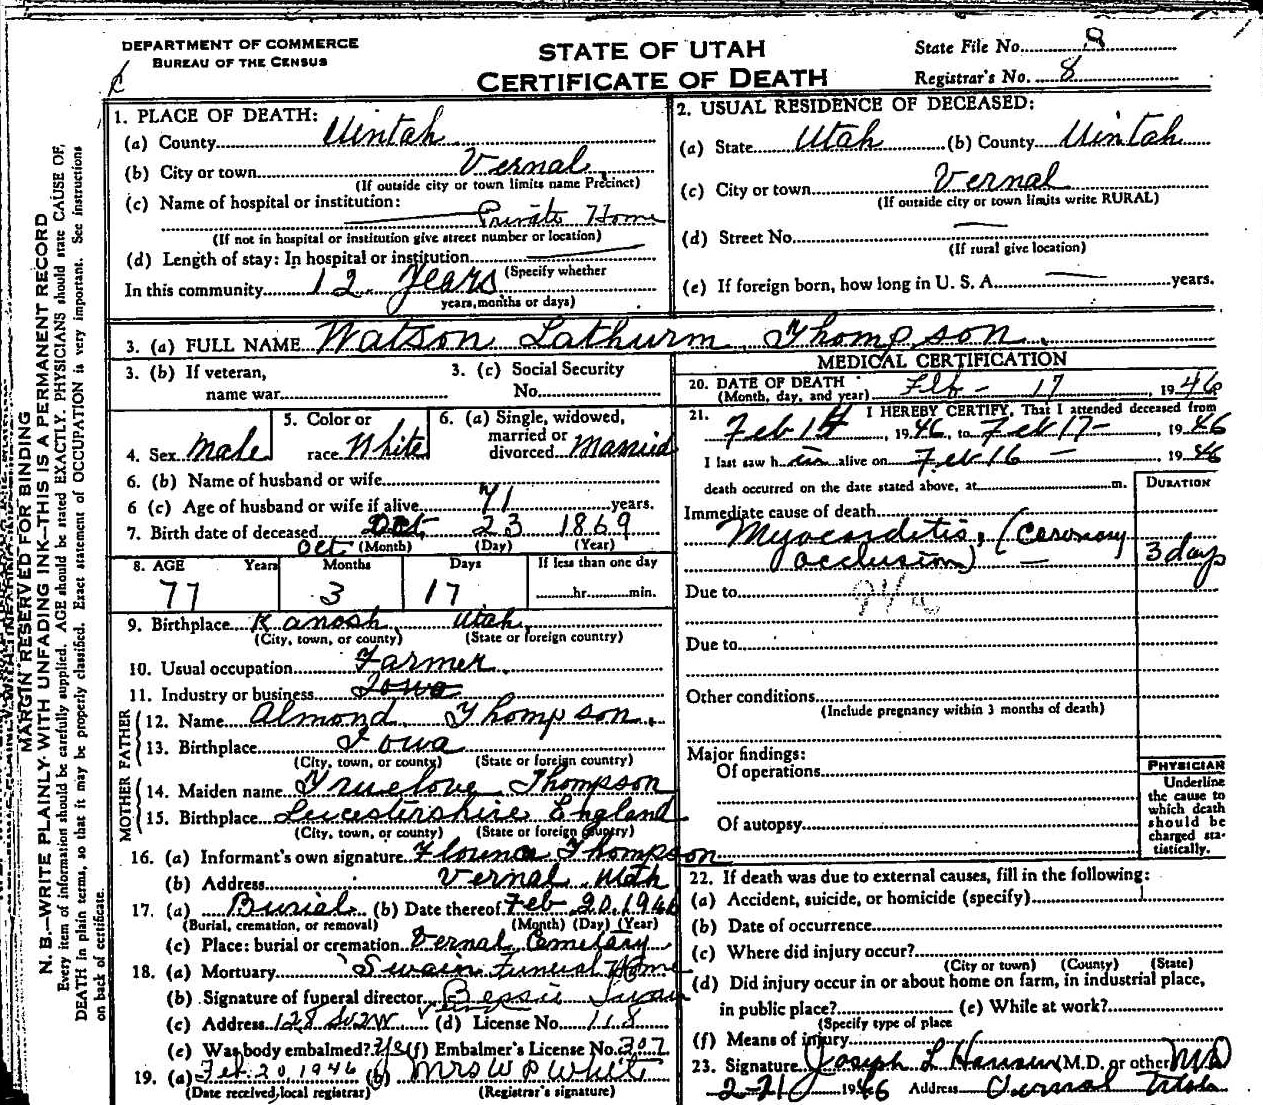 DEPARTMENT OF COMMERCE
BUREAU OF THE CENSUS
STATE OF UTAH
CERTIFICATE OF DEATH
State File No. 8
Registrar's No. 8
MARGIN RESERVED FOR BINDING
N. B.—WRITE PLAINLY WITH UNFADING INK—THIS IS A PERMANENT RECORD
Every item of information should be carefully supplied. AGE should be stated EXACTLY. PHYSICIANS should state CAUSE OF
DEATH in plain terms, so that it may be properly classified. Exact statement of OCCUPATION is very important. See instructions
on back of certificate.
1. PLACE OF DEATH:
(a) County Uintah
(b) City or town Vernal
(If outside city or town limits name Precinct)
(c) Name of hospital or institution:
Private Home
(If not in hospital or institution give street number or location)
(d) Length of stay: In hospital or institution
(Specify whether
In this community 12 Years
years, months or days)
2. USUAL RESIDENCE OF DECEASED:
(a) State Utah (b) County Uintah
(c) City or town Vernal
(If outside city or town limits write RURAL)
(d) Street No. —
(If rural give location)
(e) If foreign born, how long in U. S. A. — years.
3. (a) FULL NAME Watson Lathurm Thompson
3. (b) If veteran,
name war
3. (c) Social Security
No.
4. Sex Male
5. Color or
race White
6. (a) Single, widowed,
married or
divorced Married
6. (b) Name of husband or wife
6 (c) Age of husband or wife if alive 71 years.
7. Birth date of deceased Oct. 23 1869
Oct (Month) (Day) (Year)
8. AGE Years Months Days If less than one day
77 3 17 hr. min.
9. Birthplace Kanosh Utah
(City, town, or county) (State or foreign country)
10. Usual occupation Farmer
11. Industry or business Iowa
FATHER
12. Name Almond Thompson
13. Birthplace Iowa
(City, town, or county) (State or foreign country)
MOTHER
14. Maiden name Truelove Thompson
15. Birthplace Leicestershire England
(City, town, or county) (State or foreign country)
16. (a) Informant's own signature Florence Thompson
(b) Address Vernal Utah
17. (a) Burial (b) Date thereof Feb 20, 1946
(Burial, cremation, or removal) (Month) (Day) (Year)
(c) Place: burial or cremation Vernal Cemetary
18. (a) Mortuary Swain Funeral Home
(b) Signature of funeral director Bessie Swain
(c) Address 128 So 2W Vernal (d) License No. 118
(e) Was body embalmed? (f) Embalmer's License No. 307
19. (a) Feb 20, 1946 (b) Mrs W P White
(Date received, local registrar) (Registrar's signature)
MEDICAL CERTIFICATION
20. DATE OF DEATH
(Month, day, and year) Feb - 17 1946
21. I HEREBY CERTIFY, That I attended deceased from
Feb 14, 1946, to Feb 17 - 1946
I last saw him alive on Feb 16 — 1946
death occurred on the date stated above, at m.
DURATION
Immediate cause of death
Myocarditis, (Coronary
occlusion) — 3 days
Due to 94a
Due to
Other conditions
(Include pregnancy within 3 months of death)
Major findings:
Of operations
Of autopsy
PHYSICIAN
Underline
the cause to
which death
should be
charged sta-
tistically.
22. If death was due to external causes, fill in the following:
(a) Accident, suicide, or homicide (specify)
(b) Date of occurrence
(c) Where did injury occur?
(City or town) (County) (State)
(d) Did injury occur in or about home on farm, in industrial place,
in public place? (e) While at work?
(Specify type of place
(f) Means of injury
23. Signature Joseph L Hansen (M.D. or other) MD
2-21 1946 Address Vernal Utah